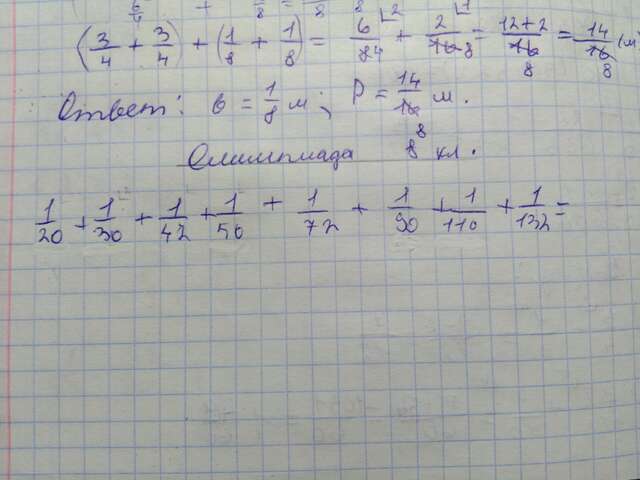 (3/4 + 3/4) + (1/8 + 1/8) = 6/4 + 2/8 = 12+2/8 = 14/8 (м
Ответ: в = 1/8 м; P = 14/8 м.
Олимпиада 8 кл.
1/20 + 1/30 + 1/42 + 1/50 + 1/72 + 1/90 + 1/110 + 1/132 =